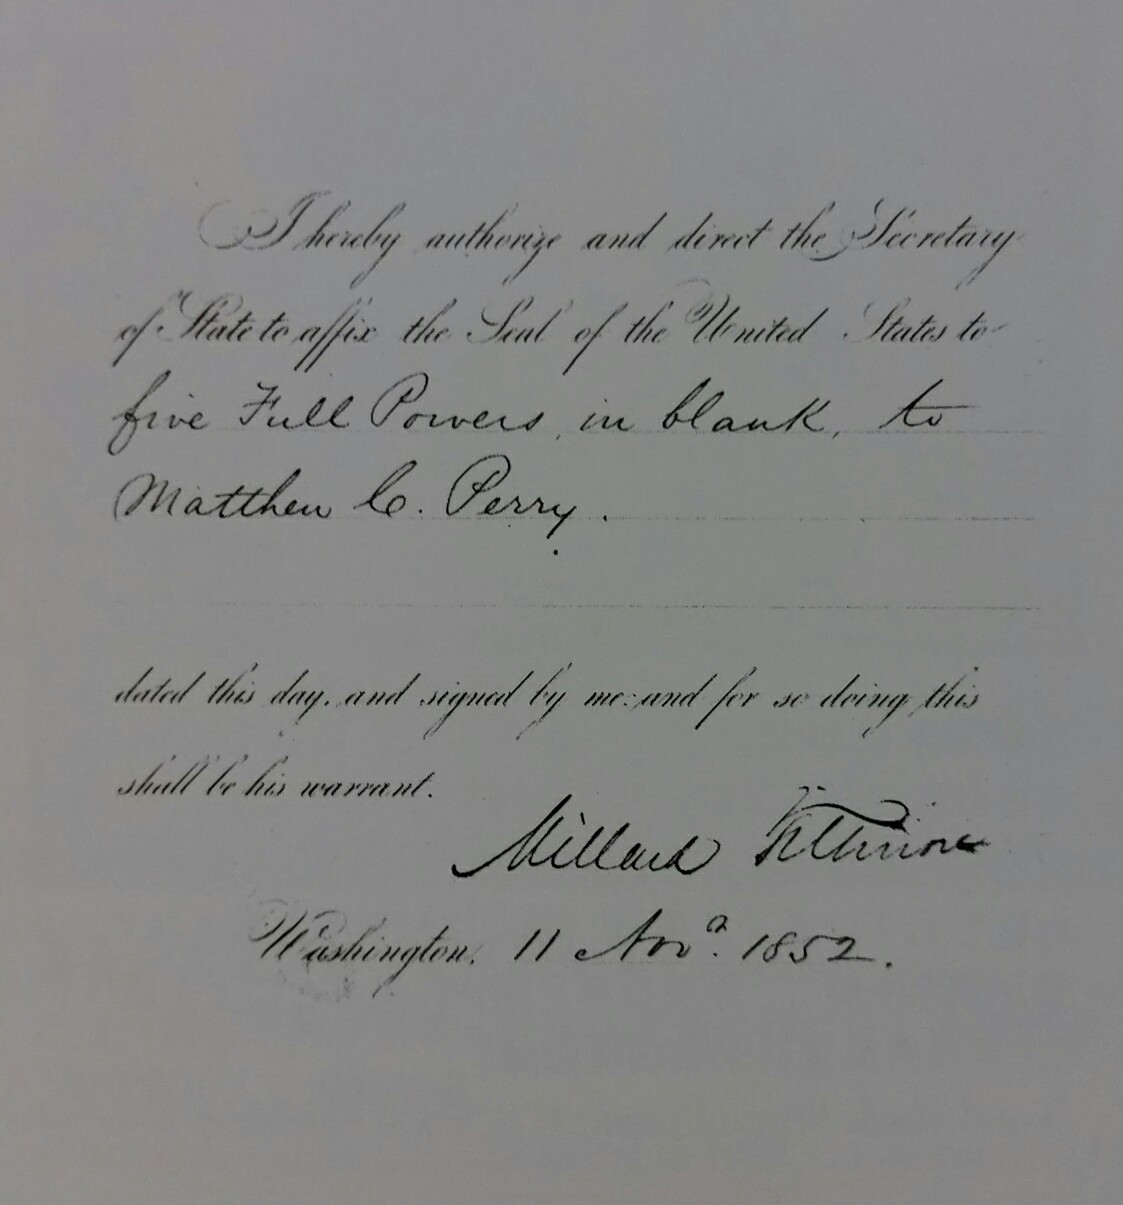 I hereby authorize and direct the Secretary
of State to affix the Seal of the United States to
five Full Powers, in blank, to
Matthew C. Perry.
dated this day, and signed by me: and for so doing this
shall be his warrant.
Millard Fillmore
Washington, 11 Novr. 1852.